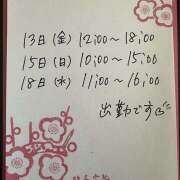 13日(金) 12:00~18:00
15日(日) 10:00~15:00
18日(水) 11:00~16:00
出勤です